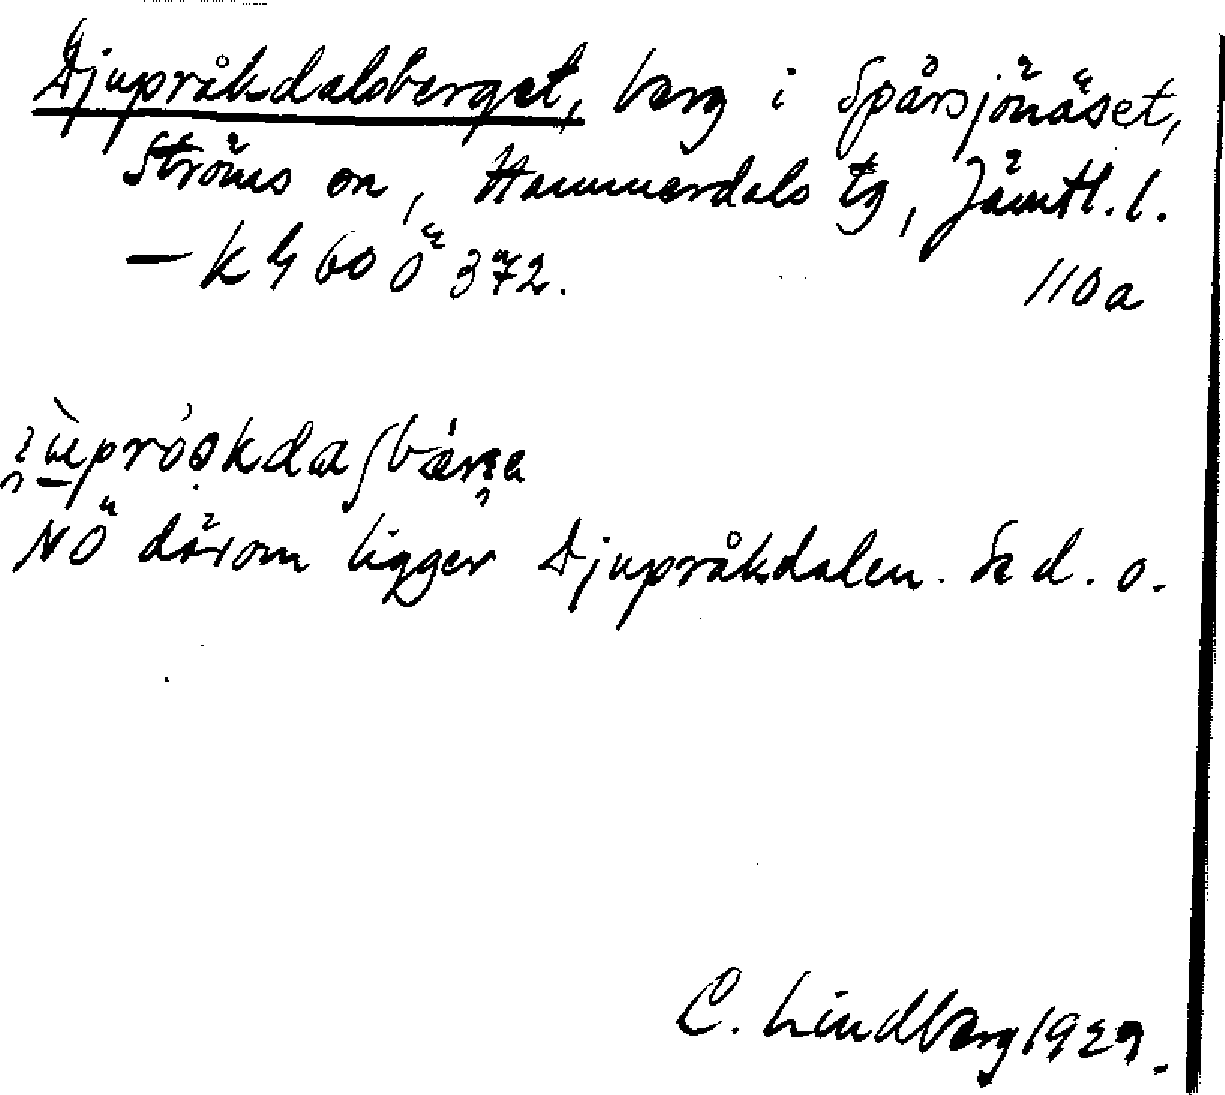 Djupråkdalsberget, berg i Spårsjönäset,
Ströms sn, Hammerdals tg, Jämtl. l.
– k 4 60 Ö 372. 110a
NÖ därom ligger Djupråkdalen. Se d. o.
C. Lindberg 1929.